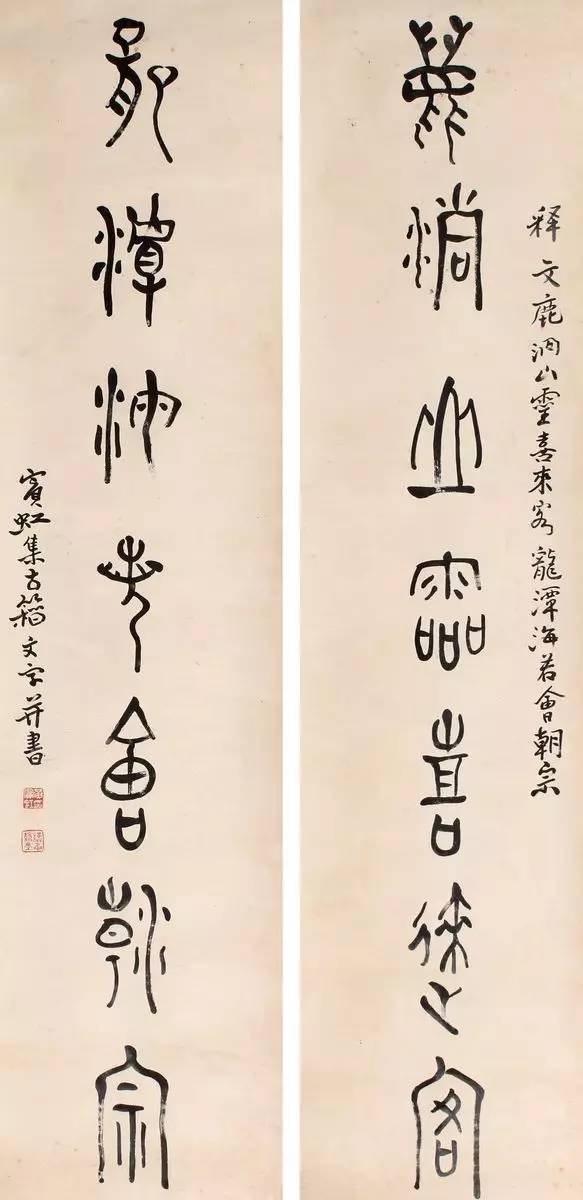 麤泂山靈喜來客
释文鹿泂山靈喜來客龍潭海若會朝宗
龍潭海若會朝宗
賓虹集古籀文字并書